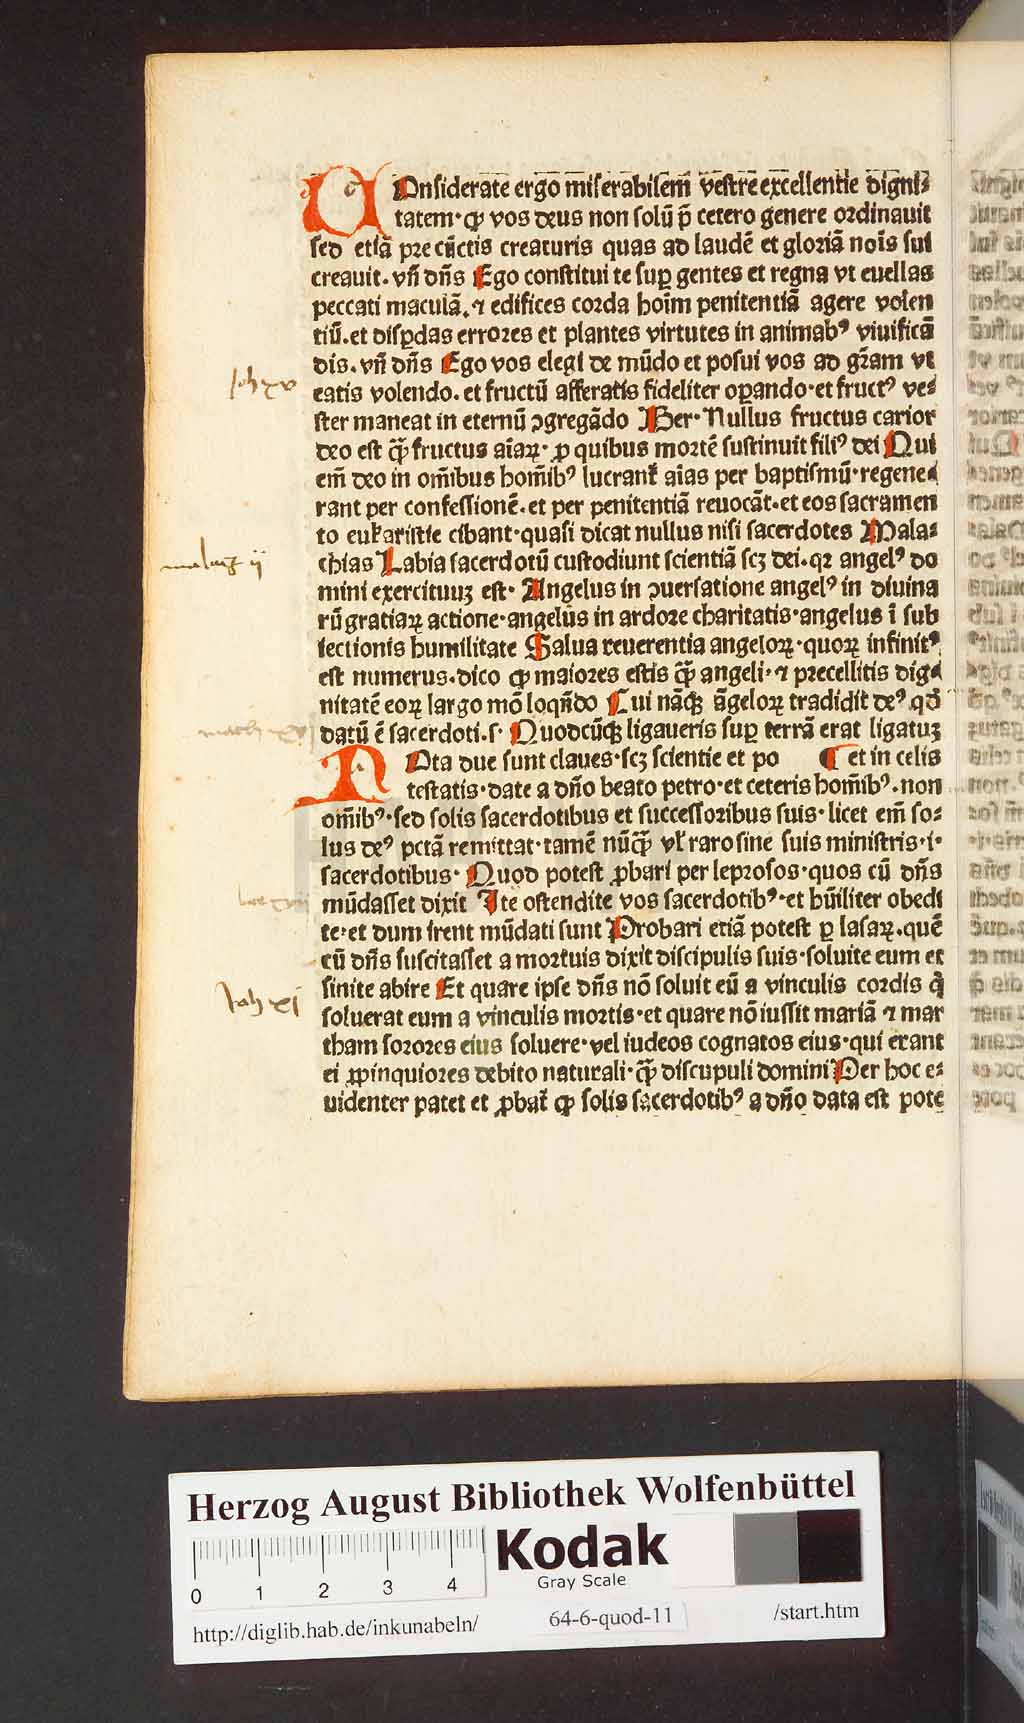 COnſiderate ergo miſerabilem̄ veſtre excellentie digni⸗
tatem· ꝙ vos deus non ſolū p̄ cetero genere ordinauit
ſed etiā pre cūctis creaturis quas ad laudē et gloriā noīs ſui
creauit. vn̄ dn̄s Ego conſtitui te ſuꝑ gentes et regna vt euellas
peccati maculā. ⁊ edifices corda hoīm penitentiā agere volen
tiū. et diſꝑdas errores et plantes virtutes in animabꝰ viuificā
dis. vn̄ dn̄s Ego vos elegi de mūdo et poſui vos ad gr̄am vt
Joh xv
eatis volendo. et fructū afferatis fideliter oꝑando· et fructꝰ ve⸗
ſter maneat in eternū ꝯgregādo Ber· Nullus fructus carior
deo eſt qͣ̄ fructus aīaꝝ· ꝓ quibus mortē ſuſtinuit filiꝰ dei Qui
em̄ deo in om̄ibus hom̄ibꝰ lucrant᷑ aīas per baptiſmū· regene⸗
rant per confeſſionē. et per penitentiā reuocāt· et eos ſacramen
to eukariſtie cibant· quaſi dicat nullus niſi ſacerdotes Mala⸗
malach ij
chias Labia ſacerdotū cuſtodiunt ſcientiā ſcꝫ dei. qꝛ angelꝰ do
mini exercituuꝫ eſt· Angelus in ꝯuerſatione angelꝰ in diuina
rū gratiaꝝ actione· angelus in ardore charitatis· angelus ī ſub
iectionis humilitate Salua reuerentia angeloꝝ· quoꝝ infinitꝰ
eſt numerus. dico ꝙ maiores eſtis qͣ̄ angeli· ⁊ precellitis dig⸗
nitatē eoꝝ largo mō loqn̄do Cui nāqꝫ āgeloꝝ tradidit deꝰ qd̄
math xvj
datū ē ſacerdoti. ſ· Quodcūqꝫ ligaueris ſuꝑ terrā erat ligatuꝫ
NOta due ſunt claues· ſcꝫ ſcientie et po ¶ et in celis
teſtatis· date a dn̄o beato petro· et ceteris hom̄ibꝰ. non
om̄ibꝰ· ſed ſolis ſacerdotibus et ſucceſſoribus ſuis· licet em̄ ſo⸗
lus deꝰ pctā remittat· tamē nūqͣ̄ vl᷑ raro ſine ſuis miniſtris· i·
ſacerdotibus· Quod poteſt ꝓbari per leproſos· quos cū dn̄s
luc xvij
mūdaſſet dixit Ite oſtendite vos ſacerdotibꝰ· et hūiliter obedi
te· et dum irent mūdati ſunt Probari etiā poteſt ꝑ laſaꝝ. quē
cū dn̄s ſuſcitaſſet a mortuis dixit diſcipulis ſuis· ſoluite eum et
Joh xi
ſinite abire Et quare ipſe dn̄s nō ſoluit eū a vinculis cordis q̇
ſoluerat eum a vinculis mortis· et quare nō iuſſit mariā ⁊ mar
tham ſorores eius ſoluere· vel iudeos cognatos eius· qui erant
ei ꝓpinquiores debito naturali· qͣ̄ diſcupuli domini Per hoc e⸗
uidenter patet et ꝓbat᷑ ꝙ ſolis ſacerdotibꝰ a dn̄o data eſt pote
Herzog August Bibliothek Wolfenbüttel
0 1 2 3 4
Kodak
Gray Scale
http://diglib.hab.de/inkunabeln/ 64-6-quod-11 /start.htm